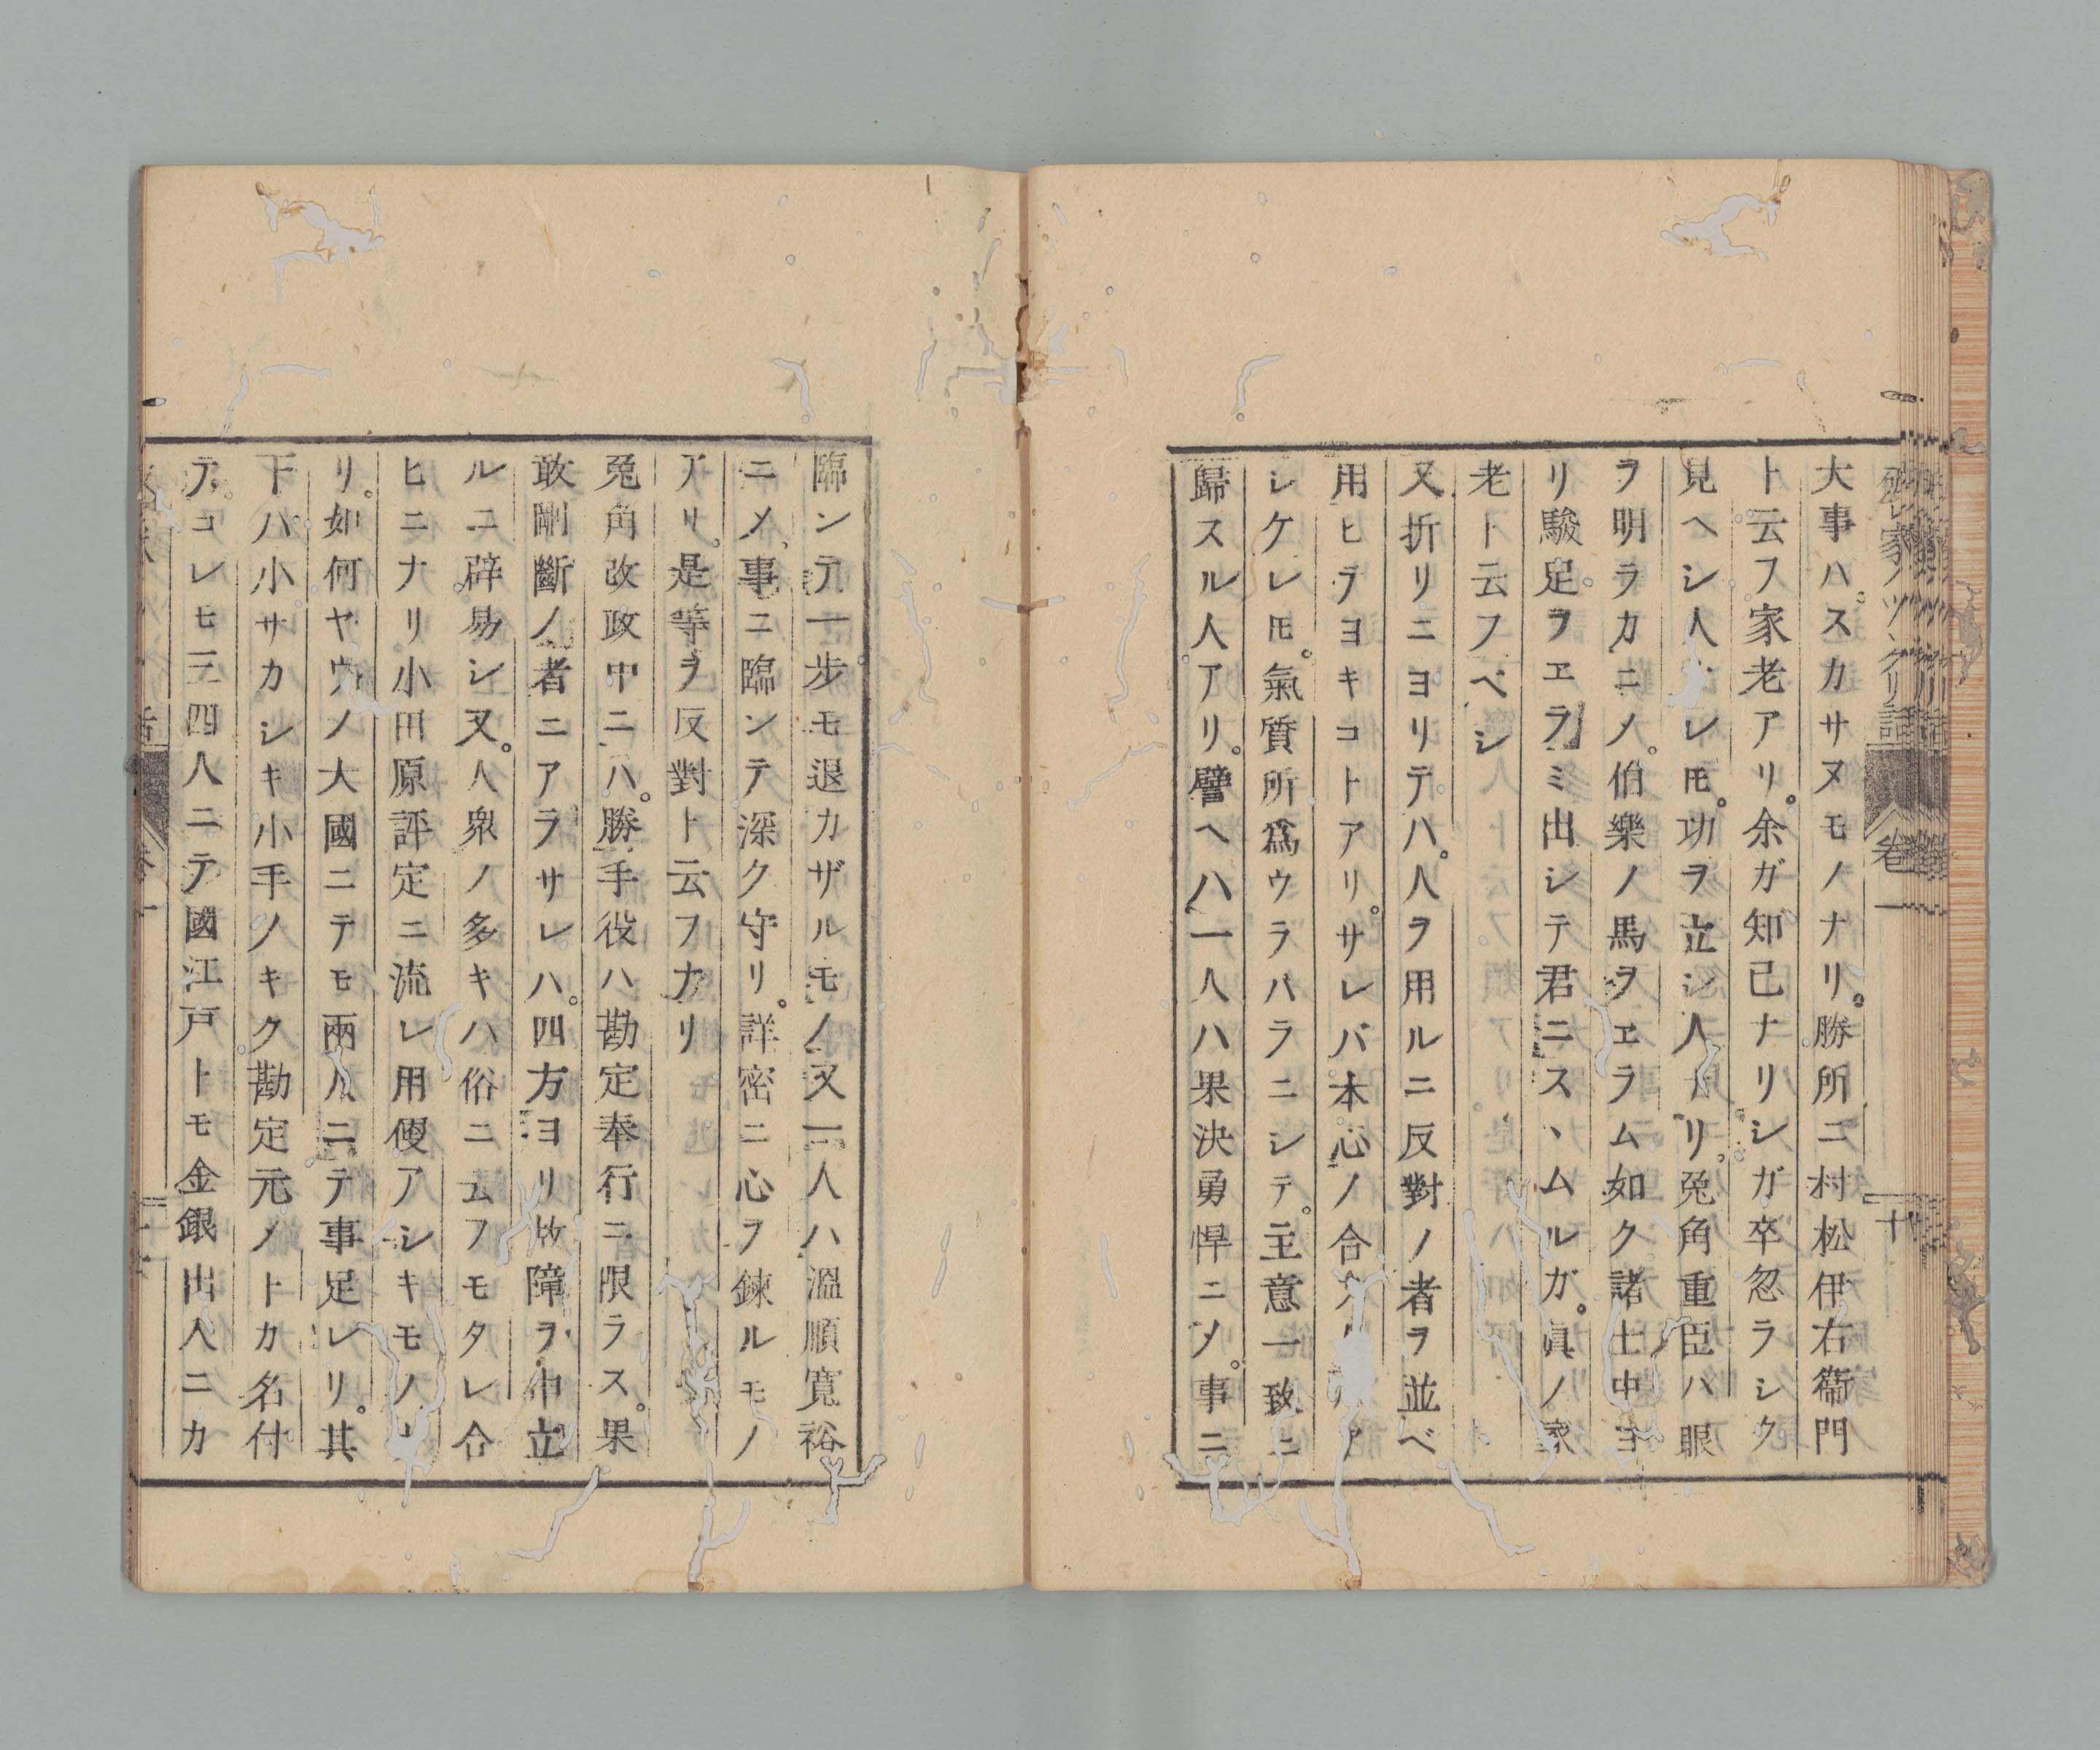 大事ハ。スカサヌモノナリ。勝所ニ村松伊右衞門
ト云フ家老アリ。余ガ知己ナリシガ卒忽ラシク
見ヘシ人ナレㇳモ。功ヲ立シ人ナリ。兎角重臣ハ眼
ヲ明ラカニメ。伯樂ノ馬ヲヱラム如ク諸士中ヨ
リ駿足ヲヱラミ出シテ君ニスヽムルガ。眞ノ家
老ト云フベシ
又折リニヨリテハ。人ヲ用ルニ反對ノ者ヲ並ベ
用ヒテヨキコトアリ。サレバ本心ノ合
シケレㇳモ。氣質所爲ウラバラニシテ。主意一致ニ
歸スル人アリ。譬ヘハ一人ハ果決勇悍ニメ。事ニ
臨ンテ一歩モ退カザルモノ又一人ハ溫順寛裕
ニメ、事ニ臨ンテ深ク守リ。詳密ニ心ヲ錬ルモノ
アリ。是等ヲ反對ト云フナリ
兎角改政中ニハ。勝手役ハ勘定奉行ニ限ラス。果
敢剛斷ノ者ニアラサレハ。四方ヨリ故障ヲ申立
ルニ辟易シ又。人衆ノ多キハ俗ニ云フモタレ合
ヒニナリ小田原評定ニ流レ用便アシキモノナ
リ。如何ヤウノ大國ニテモ兩人ニテ事足レリ。其
下ハ小サカシキ小手ノキク勘定元ノトカ名付
テ。コレモ三四人ニテ國江戸トモ金銀出入ニカ
卷一
十